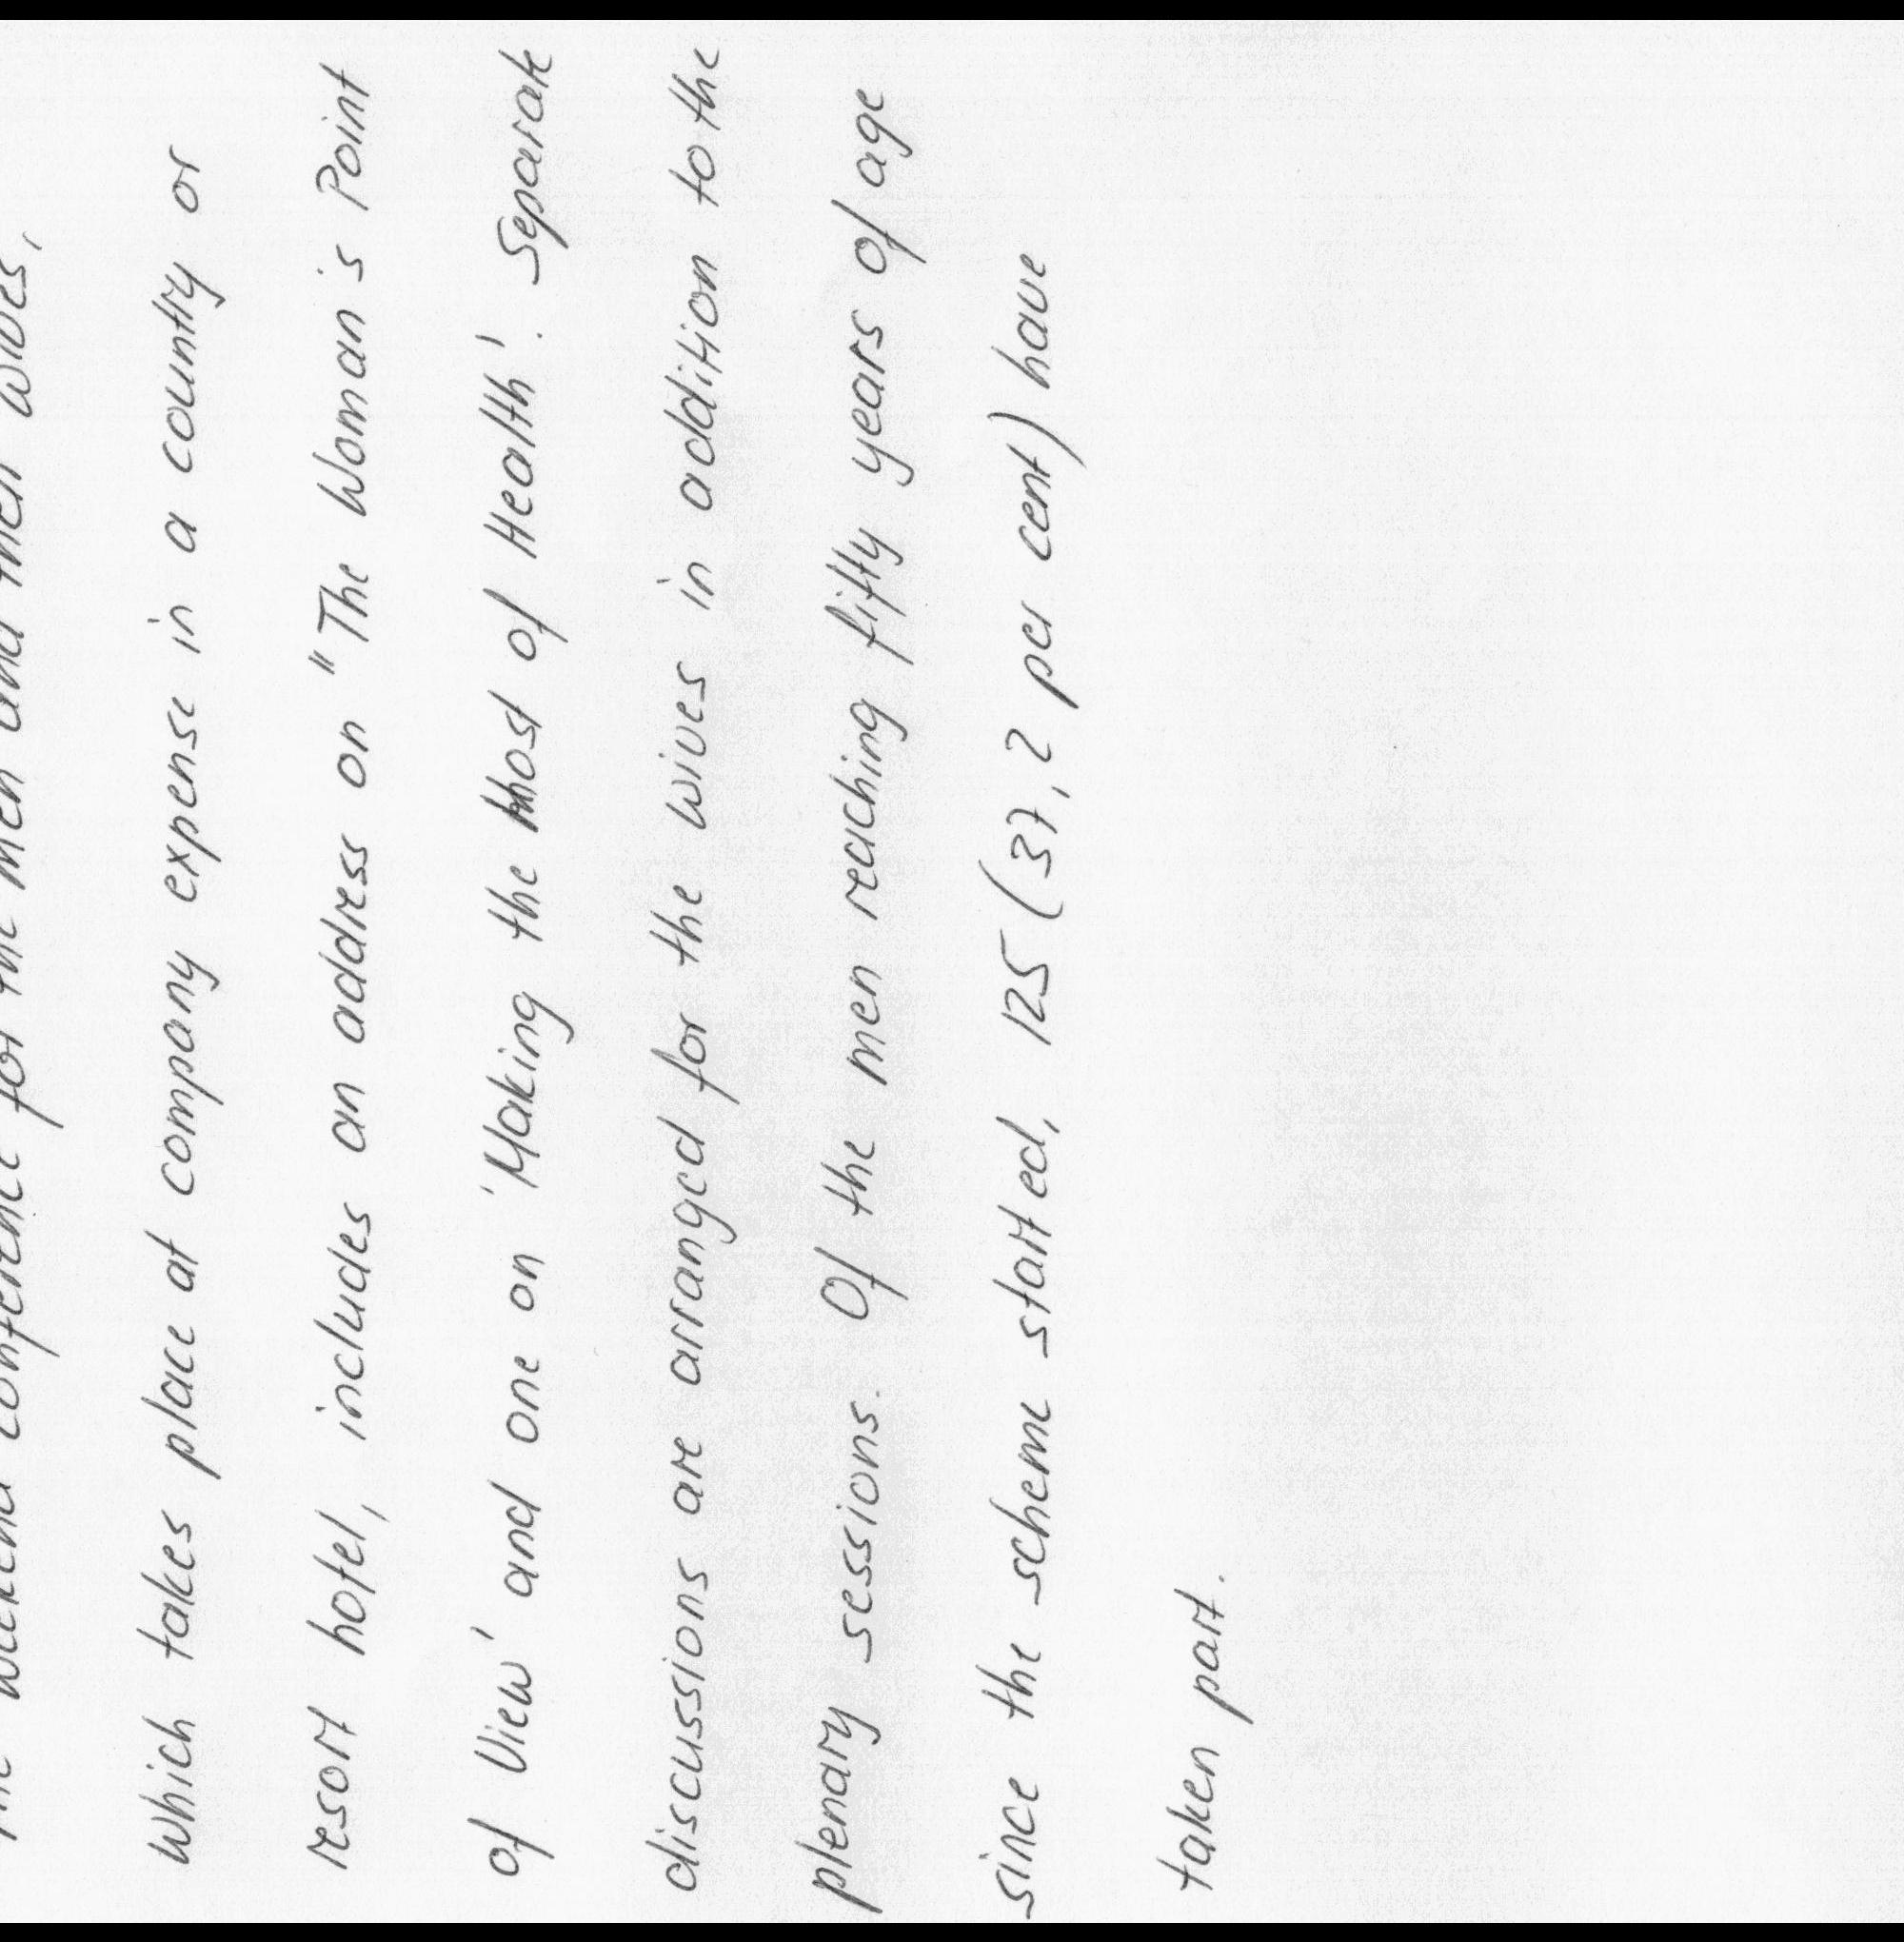 The weekend conference for the men and their wives,
which takes place at company expense in a country or
resort hotel, includes an address on "The Woman's Point
of View' and one on 'Making the most of Health'. Separate
discussions are arranged for the wives in addition to the
plenary sessions. Of the men reaching fifty years of age
since the scheme started, 125 (37,2 per cent) have
taken part.